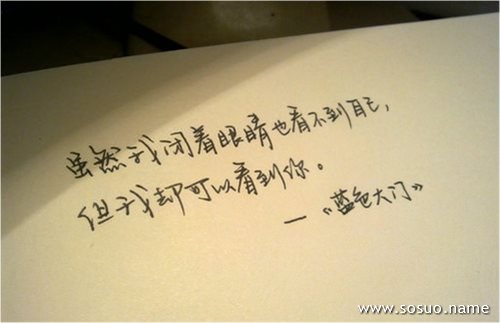 虽然我闭着眼睛也看不到自己,
但我却可以看到你。
—《蓝色大门》
www.sosuo.name